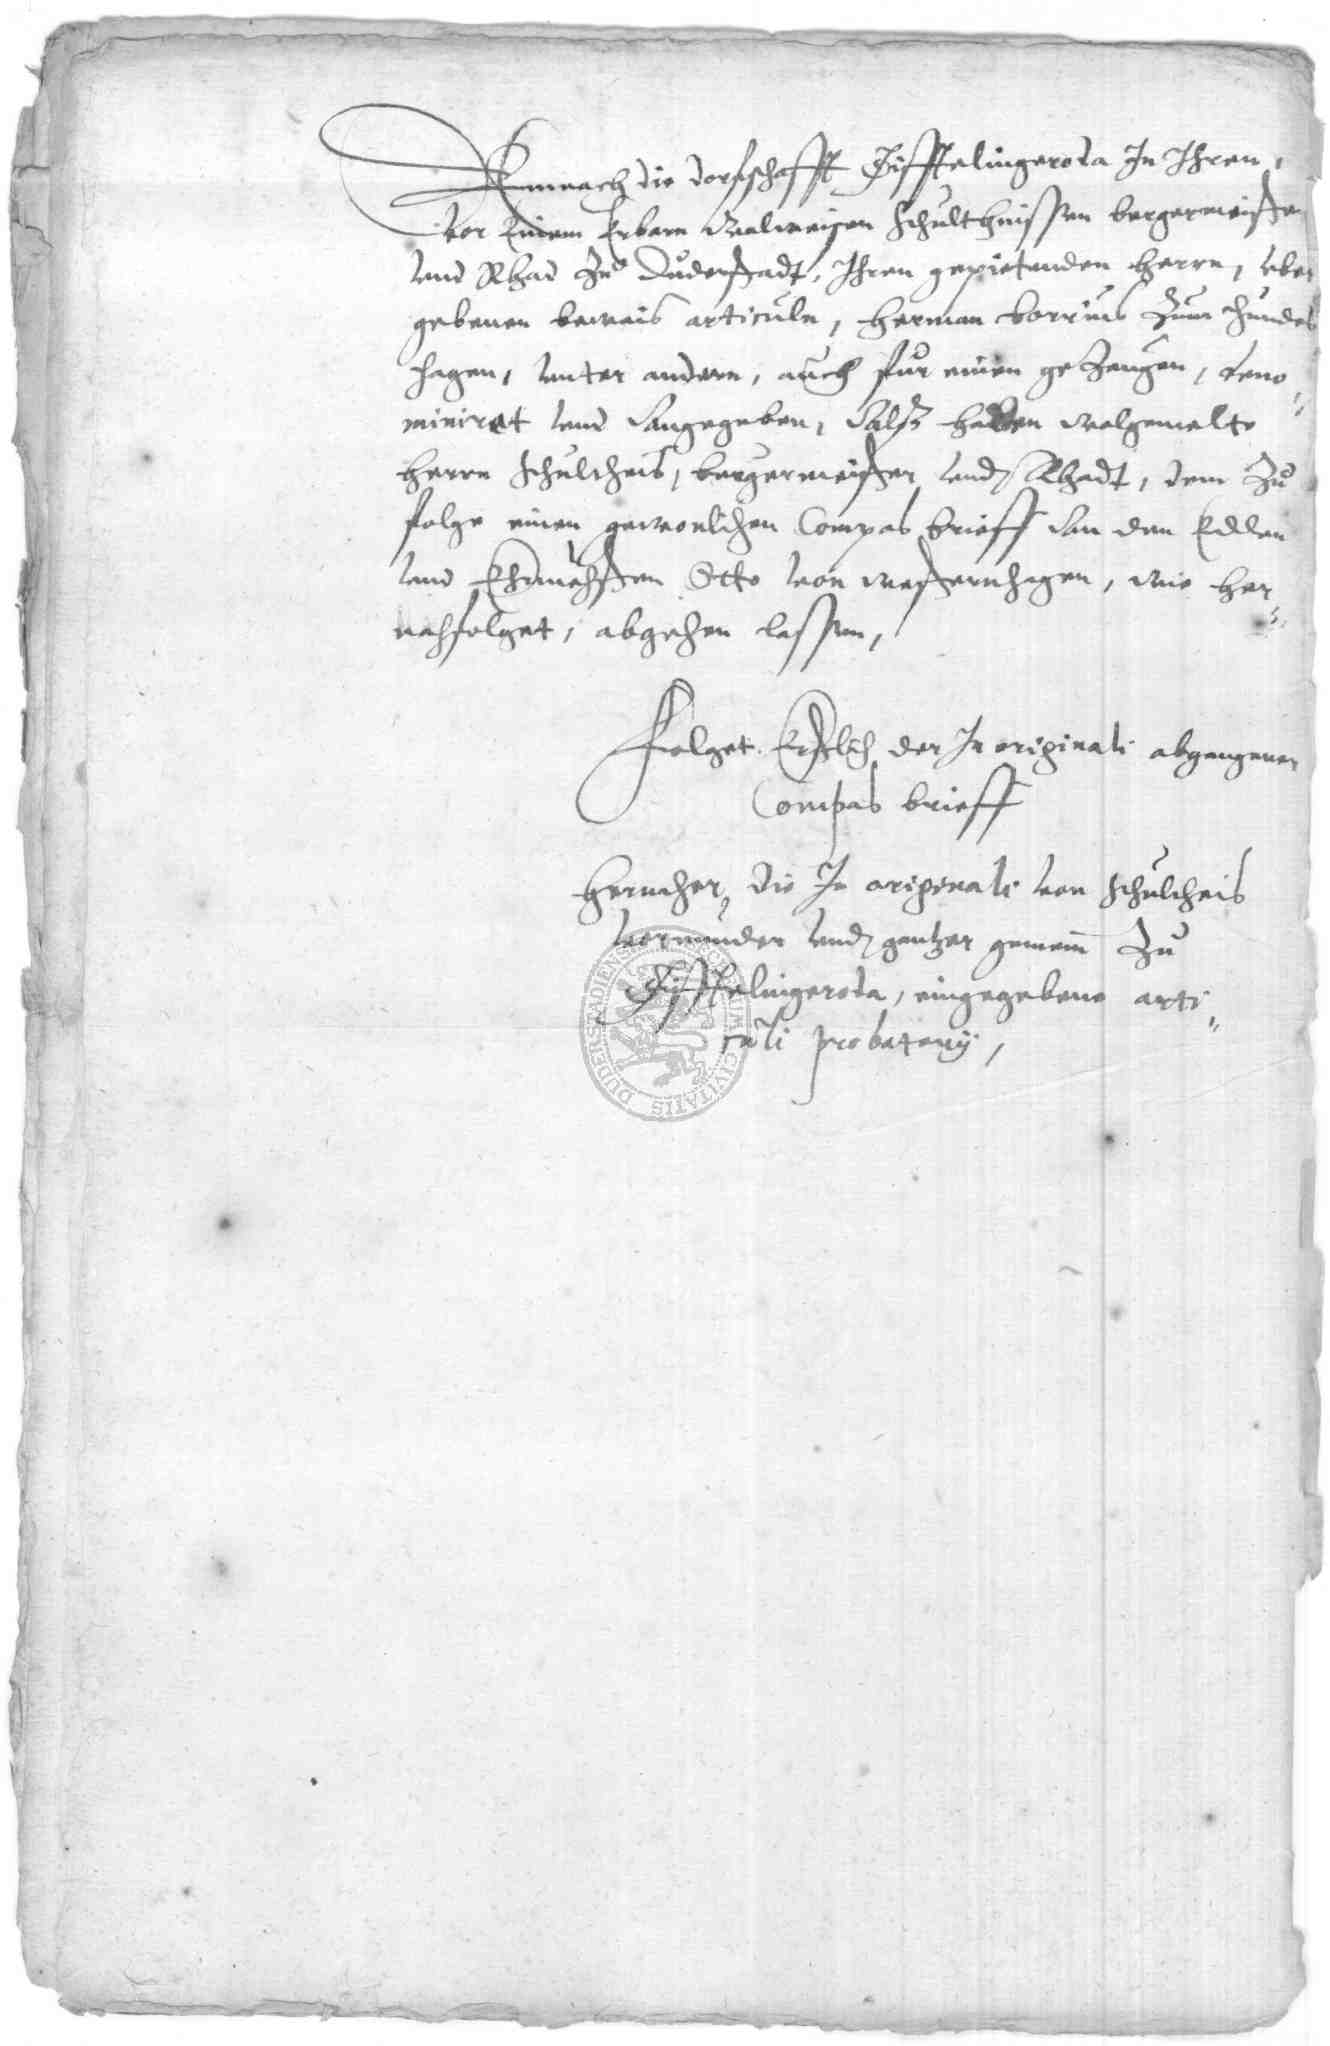 Demnach die dorffschafft Tifftelingeroda In Ihren,
vor Einem Erbarn wolweisen Schultheissen bergermeister
vnd Rhad Zu Duderstadt, Ihren gepietenden herrn, vber
gebenen beweis articuln, Herman Zum Hundes
hagen, vnter andern, auch fur einen gezeugen, deno
miniret vnd angegeben, Alß haben wolgemelte
herrn Schultheis, bergermeister vnd Rhadt, dem Zu
folge einen gewonlichen Compas brieff an den Edlen
vnd Ehrnuhesten Otto von westernhagen, wie her
nahfolget, abgehen lassen,
Folget Erstlich der In originali abgangener
Compas brieff
Herncher, die In originali von Schultheis
vormunder vnd gantzer gemein Zu
Tifftelingeroda, eingegebene arti
culi probatorij,
DUDERSTADIENSIS CIVITATIS